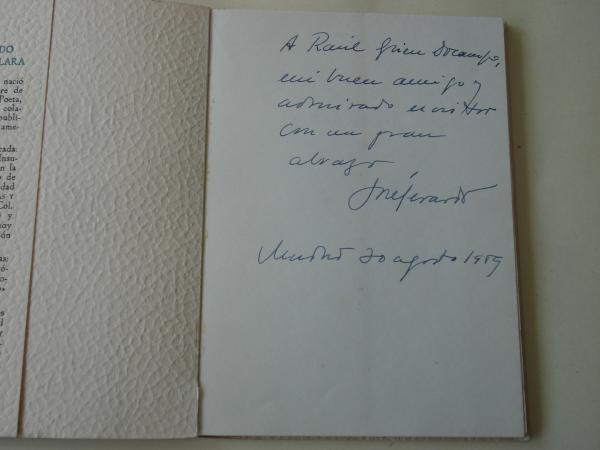 DO
LARA
nació
re de
Poeta,
cola-
publi-
ame-
cada:
Insu-
n la
o de
dad
as y
Col.
s y
hoy
ión
as:
ó-
o-
A Raúl Grien Docampo,
mi buen amigo y
admirado escritor
con un gran
abrazo
José Gerardo
Madrid 20 agosto 1959